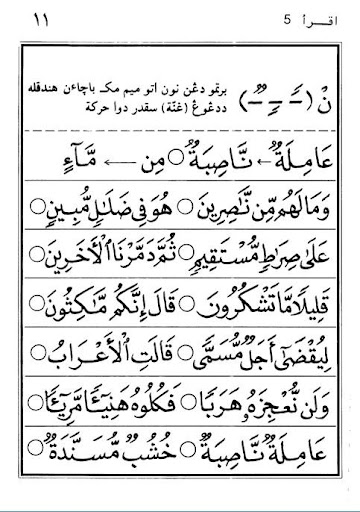 اقرأ 5 ١١
نْ (ـَـ ـٍـ ـٌـ) برتمو دڠن نون اتو ميم مک باچاءن هندقله
ددڠوڠ (غنّة) سقدر دوا حركة
عَامِلَةٌ ← نَّاصِبَةٌ ○ مِن ← مَّآءٍ
وَمَالَهُم مِّن نَّصِرِينَ ○ هُوَ فِي ضَلَالٍ مُّبِينٍ ○
عَلَىٰ صِرَاطٍ مُّسْتَقِيمٍ ○ ثُمَّ دَمَّرْنَا ٱلْأَخَرِينَ ○
قَلِيلًا مَّا تَشْكُرُونَ ○ قَالَ إِنَّكُم مَّٰكِثُونَ ○
لِيُقْضَىٰٓ أَجَلٌ مُّسَمًّى ○ قَالَتِ ٱلْأَعْرَابُ ○
وَلَن نُّعْجِزَهُۥ هَرَبًا ○ فَكُلُوهُ هَنِيٓـًٔا مَّرِيٓـًٔا ○
عَامِلَةٌ نَّاصِبَةٌ ○ خُشُبٌ مُّسَنَّدَةٌ ○